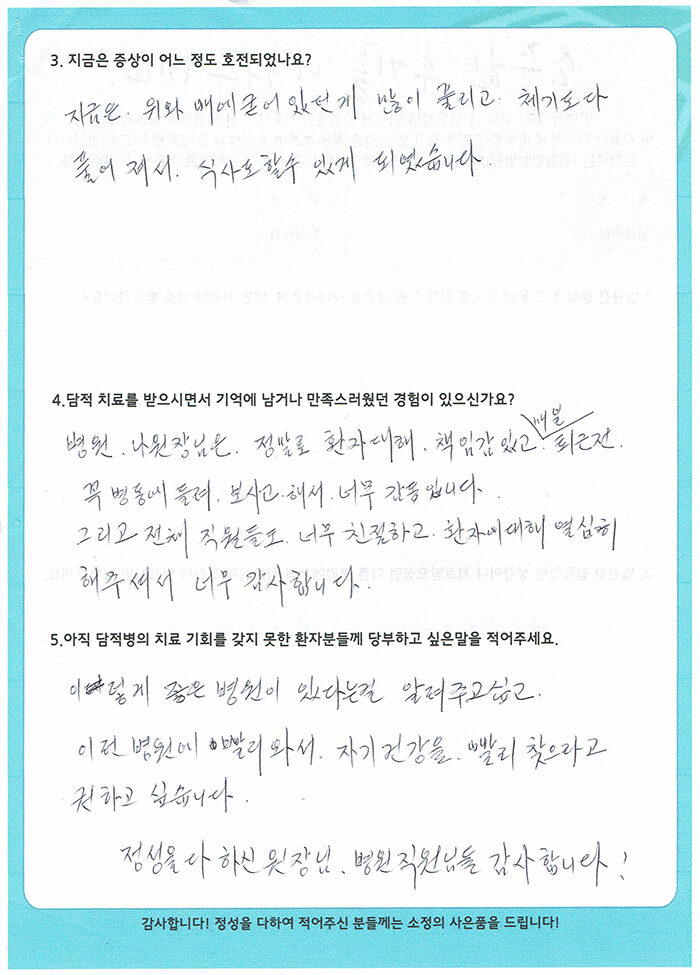 3. 지금은 증상이 어느 정도 호전되었나요?
지금은. 위와 배에 굳어 있던게 많이 풀리고. 체기도 다
풀어 져서. 식사도 할수 있게 되였습니다.
4.담적 치료를 받으시면서 기억에 남거나 만족스러웠던 경험이 있으신가요?
매일
병원. 나원장님은. 정말로 환자대해. 책임감 있고. 퇴근전.
꼭 병동에 들려. 보시고. 해서. 너무 감동입니다.
그리고 전체 직원들도. 너무 친절하고. 환자에대해 열심히
해주셔서 너무 감사합니다.
5.아직 담적병의 치료 기회를 갖지 못한 환자분들께 당부하고 싶은말을 적어주세요.
이렇게 좋은 병원이 있다는걸 알려주고싶고.
이런 병원에 빨리 와서. 자기건강을. 빨리 찾으라고
권하고 싶습니다.
정성을 다 하신 원장님. 병원직원님들 감사합니다!
감사합니다! 정성을 다하여 적어주신 분들께는 소정의 사은품을 드립니다!